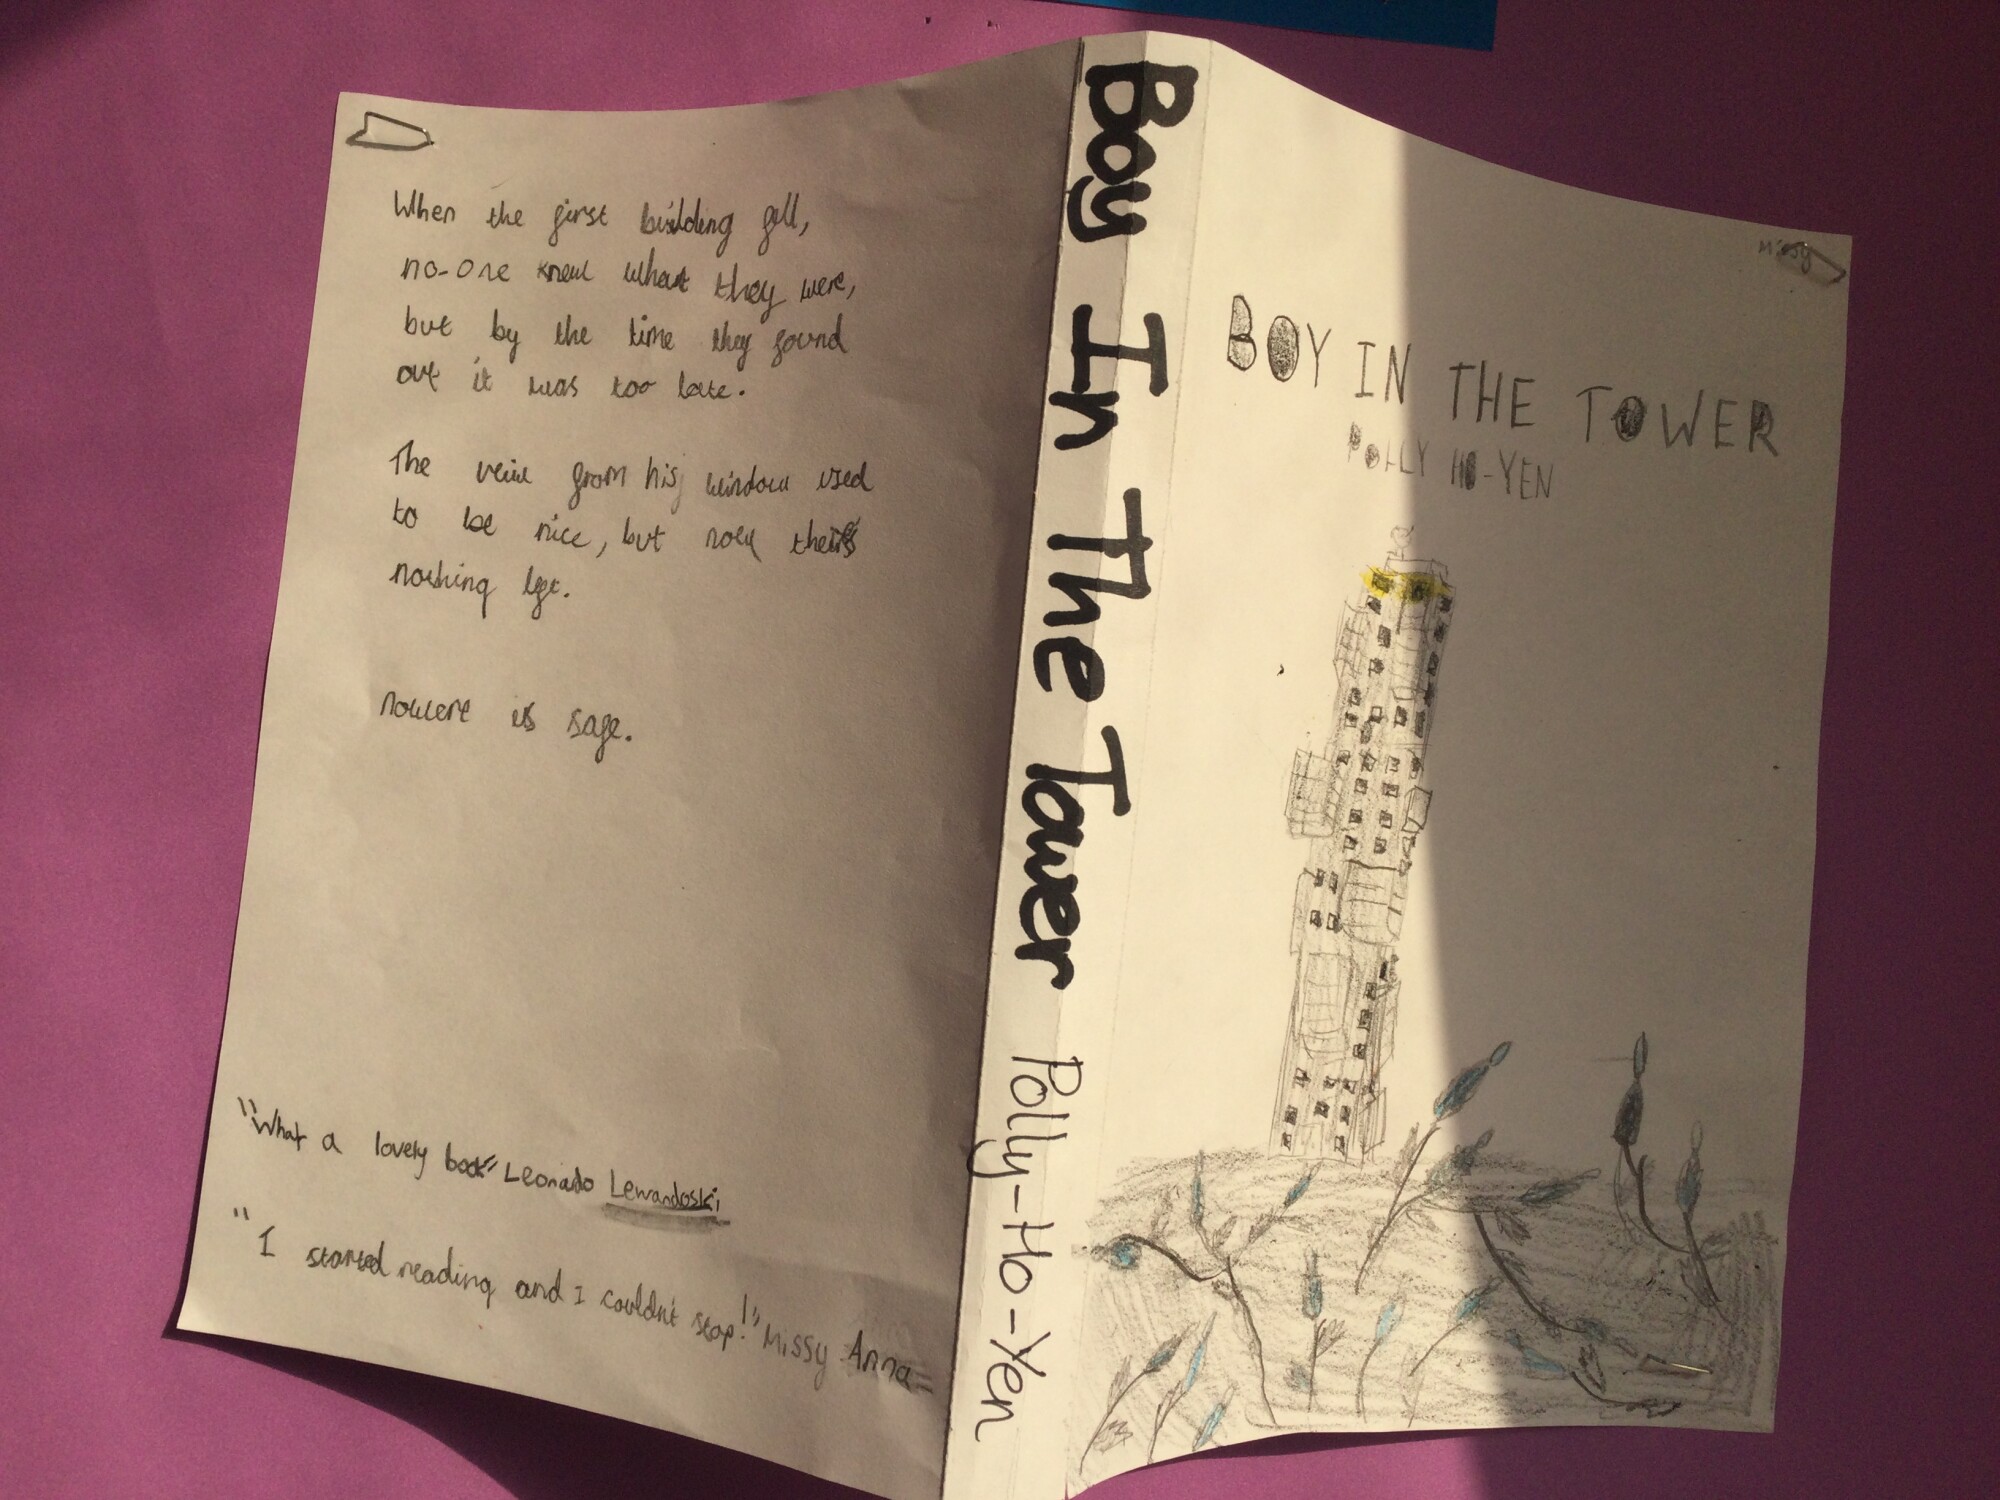 When the first building fell,
no-one knew what they were,
but by the time they found
out it was too late.
The veiw from his window used
to be nice, but now theirs
nothing left.
nowere is safe.
"What a lovely book" Leonado Lewandoski
"I started reading and I couldn't stop!" Missy Anna
Boy In The Tower Polly-Ho-Yen
Missy
BOY IN THE TOWER
POLLY HO-YEN